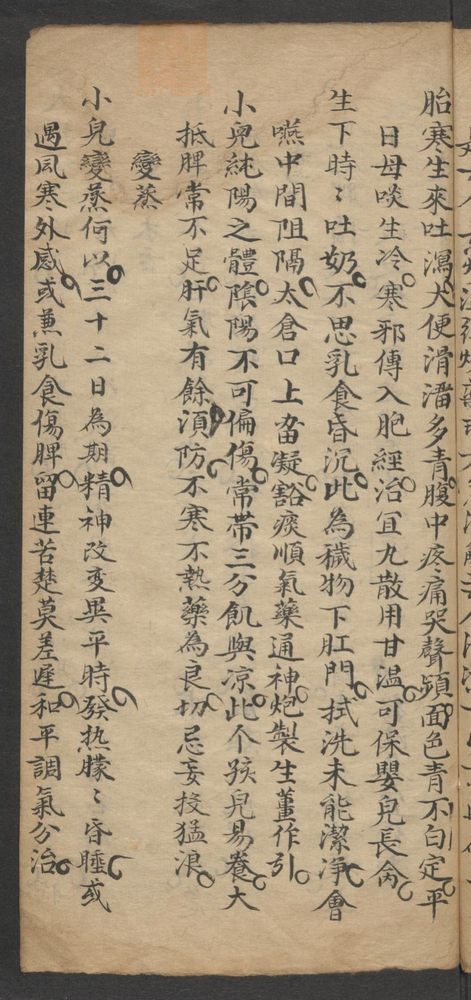 胎寒生來吐瀉大便滑潘多青腹中疼痛哭聲頻面色青不白定平
日母啖生冷寒邪傳入胞經治宜九散用甘溫可保嬰兒長命
生下時〻吐奶不思乳食昏沉此為穢物下肛門拭洗未能潔凈會
嚥中間阻隔太倉口上畱凝豁痰順氣藥通神炮製生薑作引
小兒純陽之體陰陽不可偏傷常带三分飢與凉此个孩兒易養大
抵脾常不足肝氣有餘湏防不寒不熱藥為良切忌妄投猛浪
變蒸
小兒變蒸何以三十二日為期精神改变異平時發热朦〻昏睡或
遇风寒外感或兼乳食傷脾留連苦楚莫差遲和平調氣分治